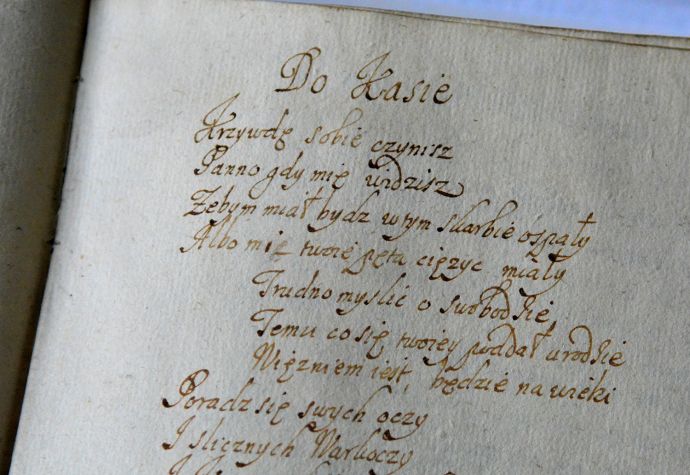 Do Kasie
Krzywdę sobie czynisz
Panno gdy mię widzisz
Zebym miał bydz w tym skarbie ospały
Albo mię twoie pęta cięzyc miały
Trudno myslić o swobodzie
Temu co się twoiey poddał urodzie
Więzniem iest, będzie na wieki
Poradz się swych oczy
I slicznych Warkoczy